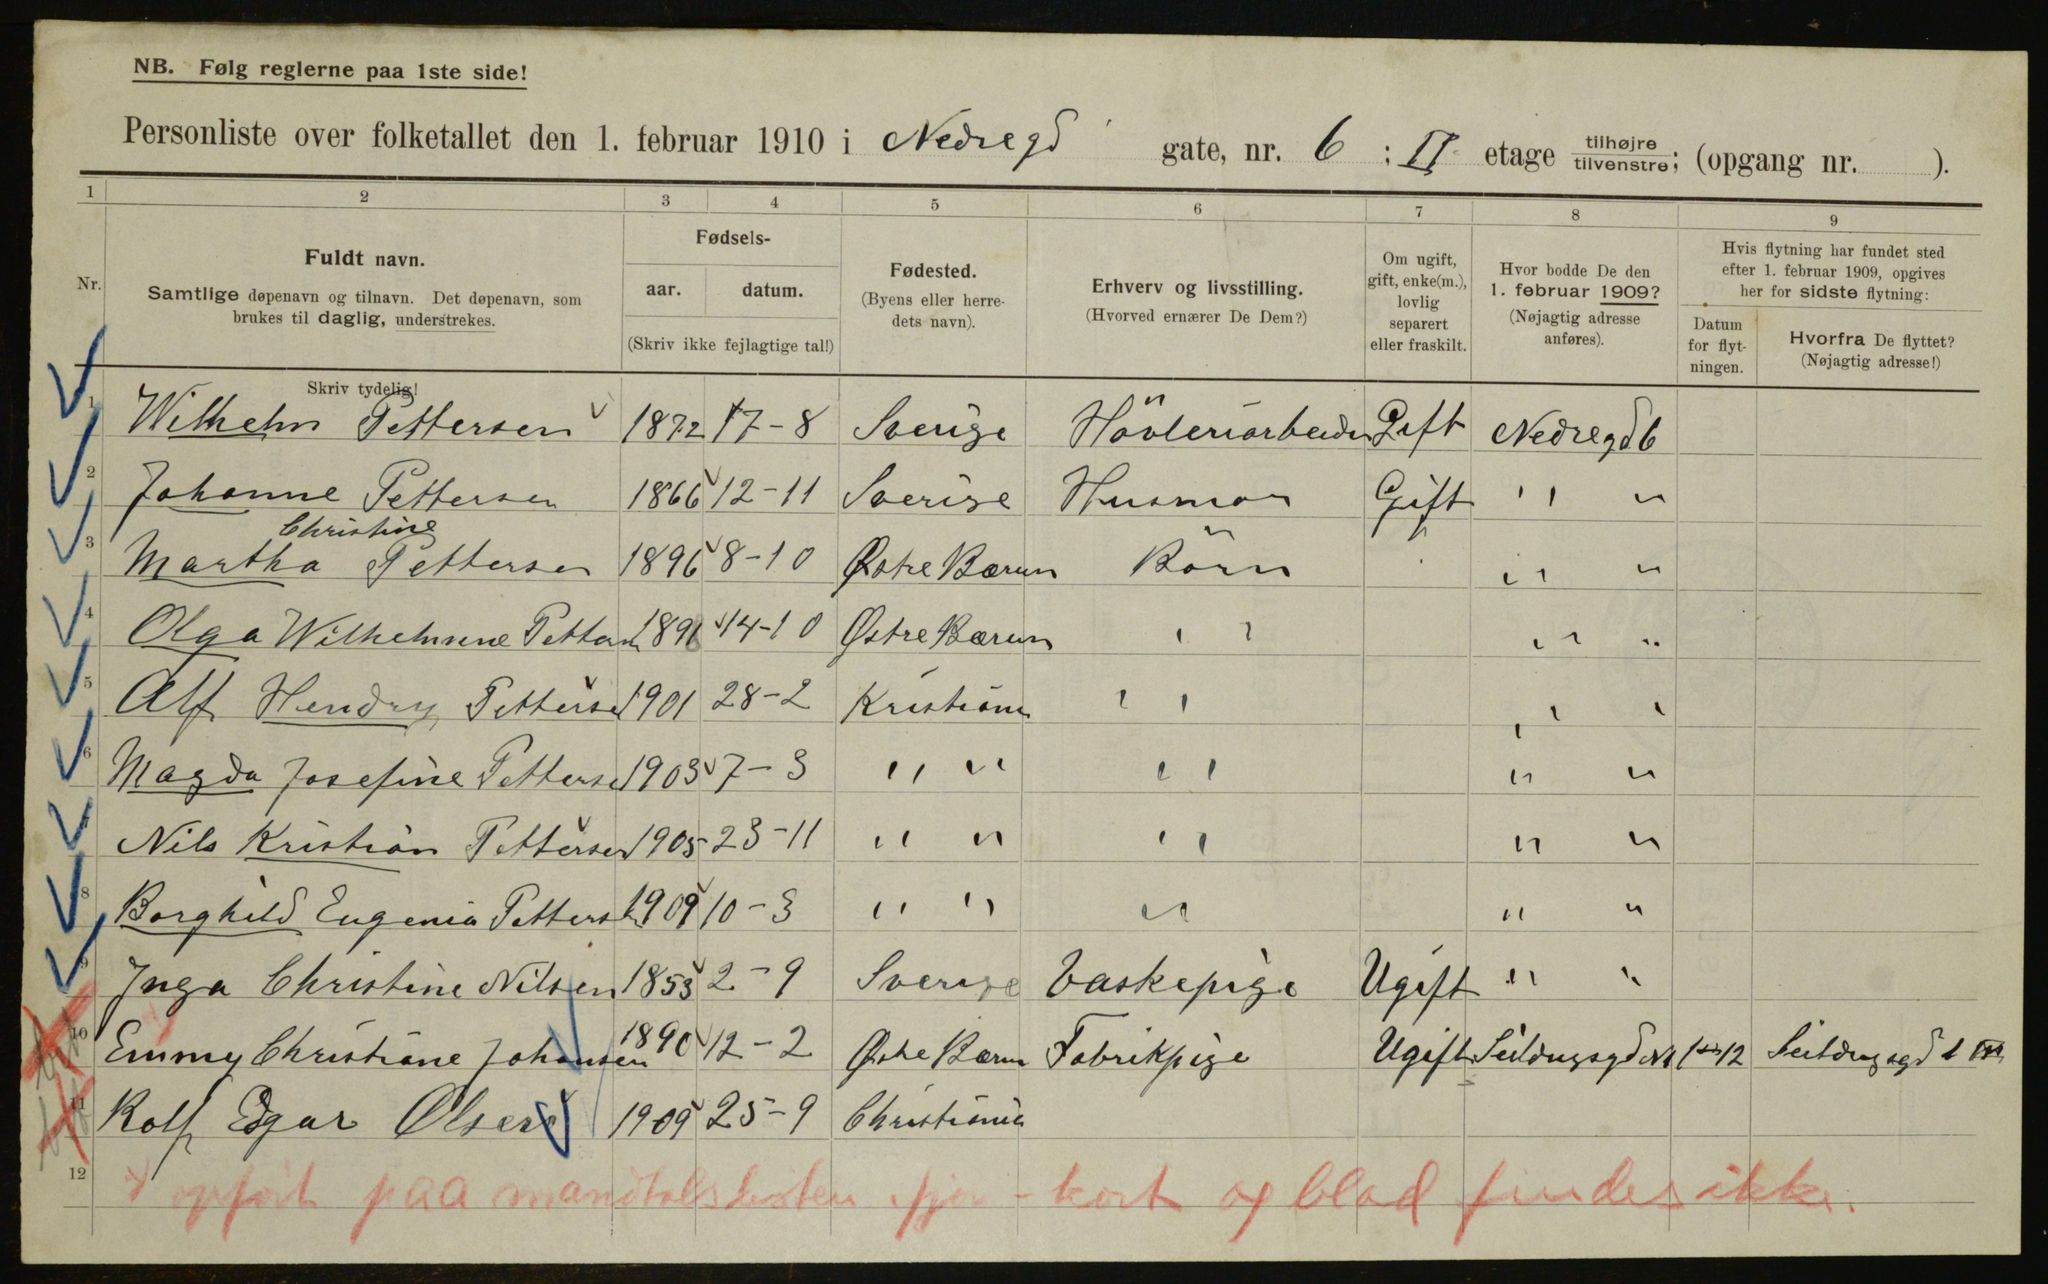 NB. Følg reglerne paa 1ste side!
Personliste over folketallet den 1. februar 1910 i Nedregd gate, nr. 6 ; II etage tilhøjre tilvenstre; (opgang nr. ).
1 2 3 4 5 6 7 8 9
Nr.
Fuldt navn.
Samtlige døpenavn og tilnavn. Det døpenavn, som
brukes til daglig, understrekes.
Skriv tydelig!
Fødsels-
aar. datum.
(Skriv ikke fejlagtige tal!)
Fødested.
(Byens eller herre-
dets navn).
Erhverv og livsstilling.
(Hvorved ernærer De Dem?)
Om ugift,
gift, enke(m.),
lovlig
separert
eller fraskilt.
Hvor bodde De den
1. februar 1909?
(Nøjagtig adresse
anføres).
Hvis flytning har fundet sted
efter 1. februar 1909, opgives
her for sidste flytning:
Datum
for flyt-
ningen.
Hvorfra De flyttet?
(Nøjagtig adresse!)
1 Wilhelm Pettersen 1872 17-8 Sverige Hövleriarbeider Gift Nedregd 6
2 Johanne Pettersen 1866 12-11 Sverige Husmor Gift " "
Christine
3 Martha Pettersen 1896 8-10 Østre Bærum Börn " "
4 Olga Wilhelmine Pettersen 1898 14-10 Østre Bærum " " " "
5 Alf Hendry Pettersen 1901 28-2 Kristiania " " " "
6 Magda Josefine Pettersen 1903 7-3 " " " " " "
Nils Kristian Pettersen 1905 23-11 " " " " " "
8 Borghild Eugenia Pettersen 1909 10-3 " " " " "
9 Inga Christine Nilsen 1853 2-9 Sverige Vaskepige Ugift " "
10 Emmy Christiane Johansen 1890 12-2 Østre Bærum Fabrikpige Ugift Seildugsgd No 1 12 Seildugsgd 1 III
11 Rolf Edgar Olsen 1909 25-9 Christiania
12 opfört paa mandtalslisten ifjor - kort og blad findes ikke.